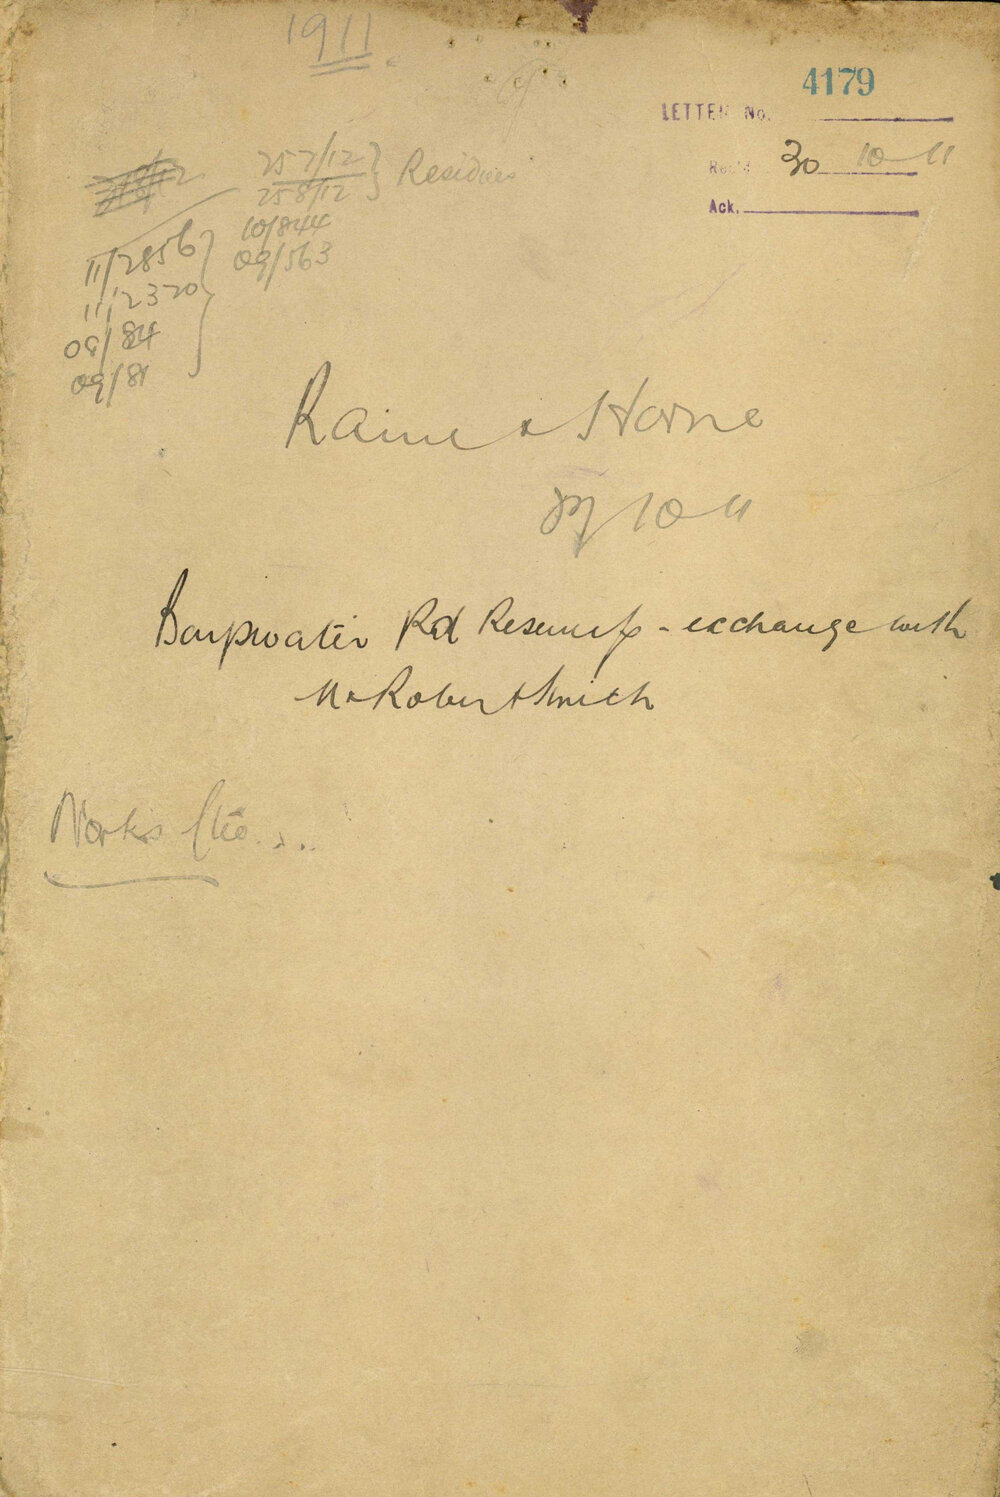 1911.
4179
LETTER No.
Rec'd 30 10 11
Ack.
257/12 } Residues
258/12
10/844
09/563
11/2856
11/2320
09/84
09/81
Raine & Horne
27 10 11
Bayswater Rd Resumpt - exchange with
Mr Robert Smith
Works Ctee...